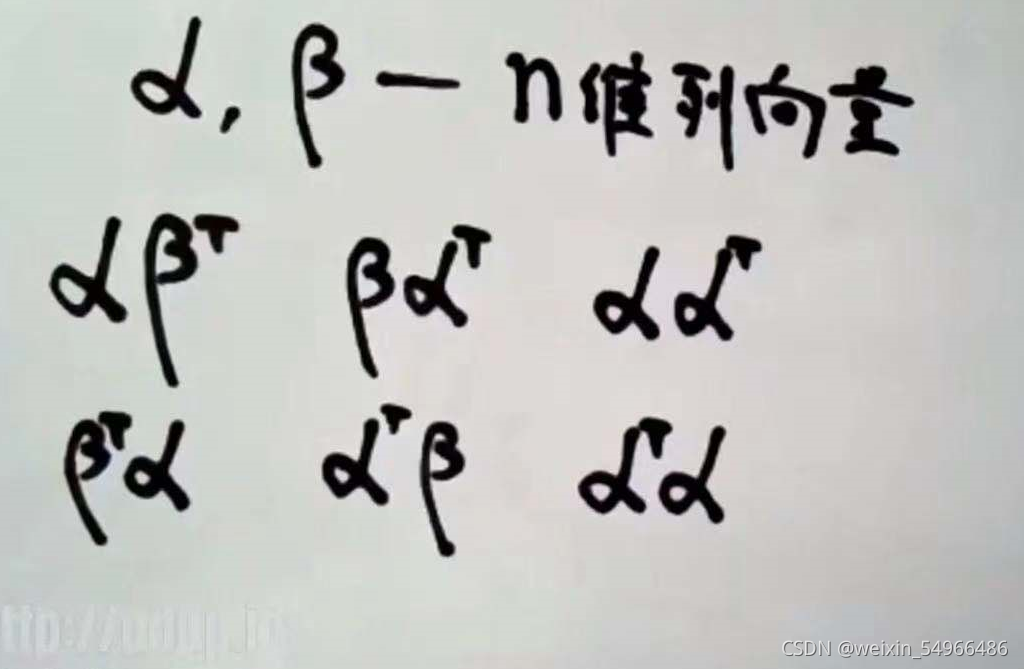 α, β — n维列向量
αβᵀ βαᵀ ααᵀ
βᵀα αᵀβ αᵀα
CSDN @weixin_54966486